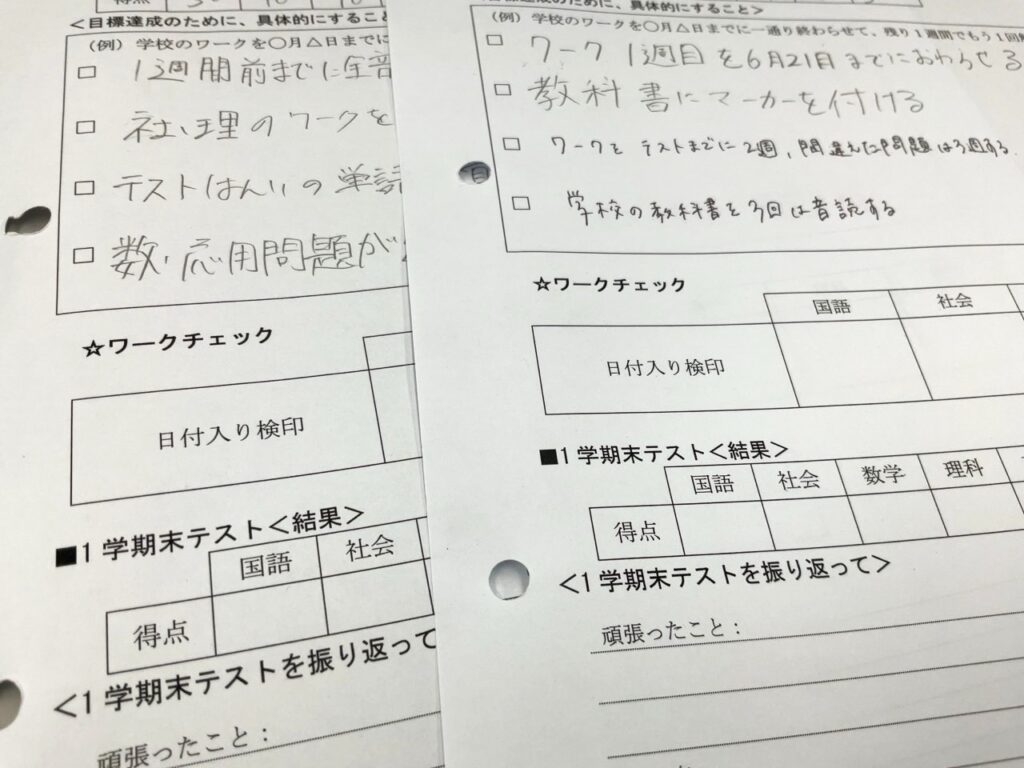 <目標達成のために、具体的にすること
(例)学校のワークを〇月△日までに
□ 1週間前までに全部
□ 社、理のワークを
□ テストはんいの単語
□ 数、応用問題が
☆ワークチェック
日付入り検印
■1学期末テスト<結果>
国語 社会
得点
<1学期末テストを振り返って
頑張ったこと:
目標達成のために、具体的にすること>
(例)学校のワークを〇月△日までに一通り終わらせて、残り1週間でもう1回
□ ワーク 1週目を6月21日までにおわらせる
□ 教科書にマーカーを付ける
□ ワークをテストまでに2週、間違えた問題は3週する.
□ 学校の教科書を3回は音読する
☆ワークチェック
国語 社会
日付入り検印
■1学期末テスト<結果>
国語 社会 数学 理科
得点
<1学期末テストを振り返って>
頑張ったこと: